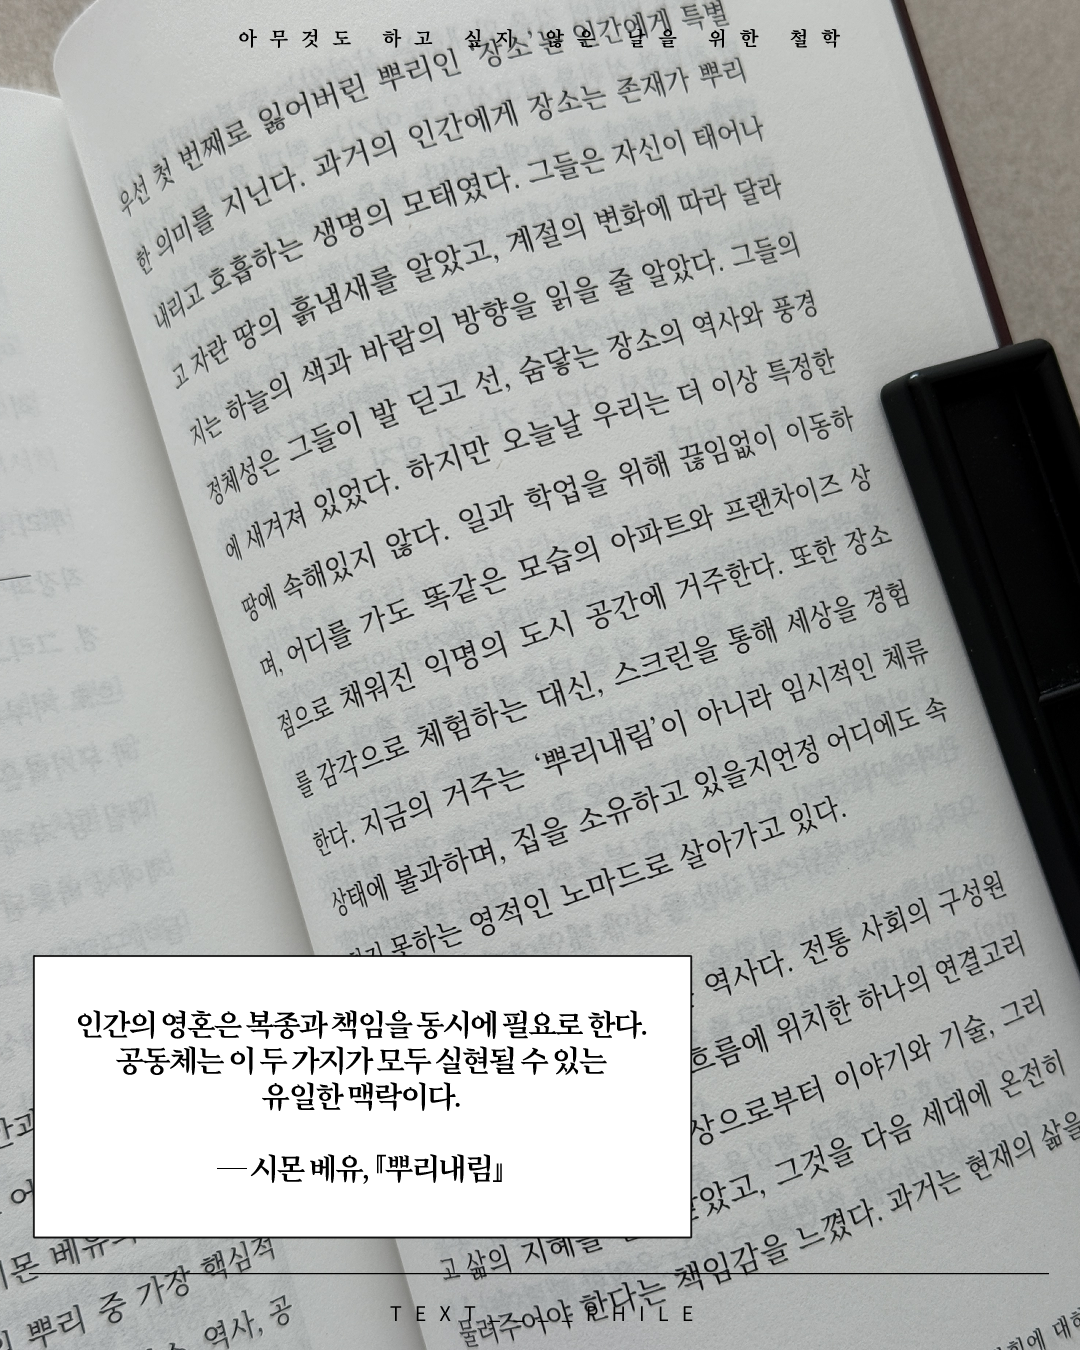 아무것도 하고 싶지 않은 날을 위한 철학
우선 첫 번째로 잃어버린 뿌리인 ‘장소’는 인간에게 특별
한 의미를 지닌다. 과거의 인간에게 장소는 존재가 뿌리
내리고 호흡하는 생명의 모태였다. 그들은 자신이 태어나
고 자란 땅의 흙냄새를 알았고, 계절의 변화에 따라 달라
지는 하늘의 색과 바람의 방향을 읽을 줄 알았다. 그들의
정체성은 그들이 발 딛고 선, 숨닿는 장소의 역사와 풍경
에 새겨져 있었다. 하지만 오늘날 우리는 더 이상 특정한
땅에 속해있지 않다. 일과 학업을 위해 끊임없이 이동하
며, 어디를 가도 똑같은 모습의 아파트와 프랜차이즈 상
점으로 채워진 익명의 도시 공간에 거주한다. 또한 장소
를 감각으로 체험하는 대신, 스크린을 통해 세상을 경험
한다. 지금의 거주는 ‘뿌리내림’이 아니라 임시적인 체류
상태에 불과하며, 집을 소유하고 있을지언정 어디에도 속
못하는 영적인 노마드로 살아가고 있다.
역사다. 전통 사회의 구성원
흐름에 위치한 하나의 연결고리
상으로부터 이야기와 기술, 그리
고 삶의 지혜를
았고, 그것을 다음 세대에 온전히
물려주어야 한다는 책임감을 느꼈다. 과거는 현재의 삶을
인간의 영혼은 복종과 책임을 동시에 필요로 한다.
공동체는 이 두 가지가 모두 실현될 수 있는
유일한 맥락이다.
— 시몬 베유, 『뿌리내림』
몬 베유의
뿌리 중 가장 핵심적
역사, 공
TEXT PHILE